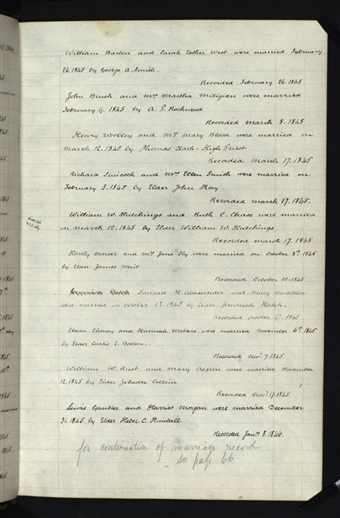 William Barton and Sarah Esther West were married February
26 1845 by George A. Smith.
Recorded February 26. 1845
John Bush and mrs Martha Milligan were married
February 9. 1845 by A. P. Rockwood
Recorded March 8. 1845
Henry Woolley and Mrs mary Oliver were married on
March 12. 1845 by Thomas Clark - High Priest
Recorded March 17. 1845
Richard and Mrs Ellen Smith were married on
February 3. 1845 by Elder John
Recorded March 17. 1845.
William W. Hutchings and Ruth C. Chase were married
on march 12. 1845 by Elder William W. Hutchings
Recorded march 17. 1845
and mrs Jane were married on October 8th 1845
by Elder James
Recorded October 10. 1845
Samuel and Mary
were married on October 1st 1845 by Elder Jeremiah Hatch.
Recorded October 1845
and Hannah were married November 6th 1845
by Elder Curtis E. Bolton.
Recorded Novr 7. 1845
William W. Rust and Mary were married November
12. 1845 by Elder
Recorded Novr 17 1845
Lewis and Harriet Morgan were married December
31. 1845 by Elder Heber C. Kimball
Recorded Jany 8. 1846.
for continuation of marriage record
so page 66